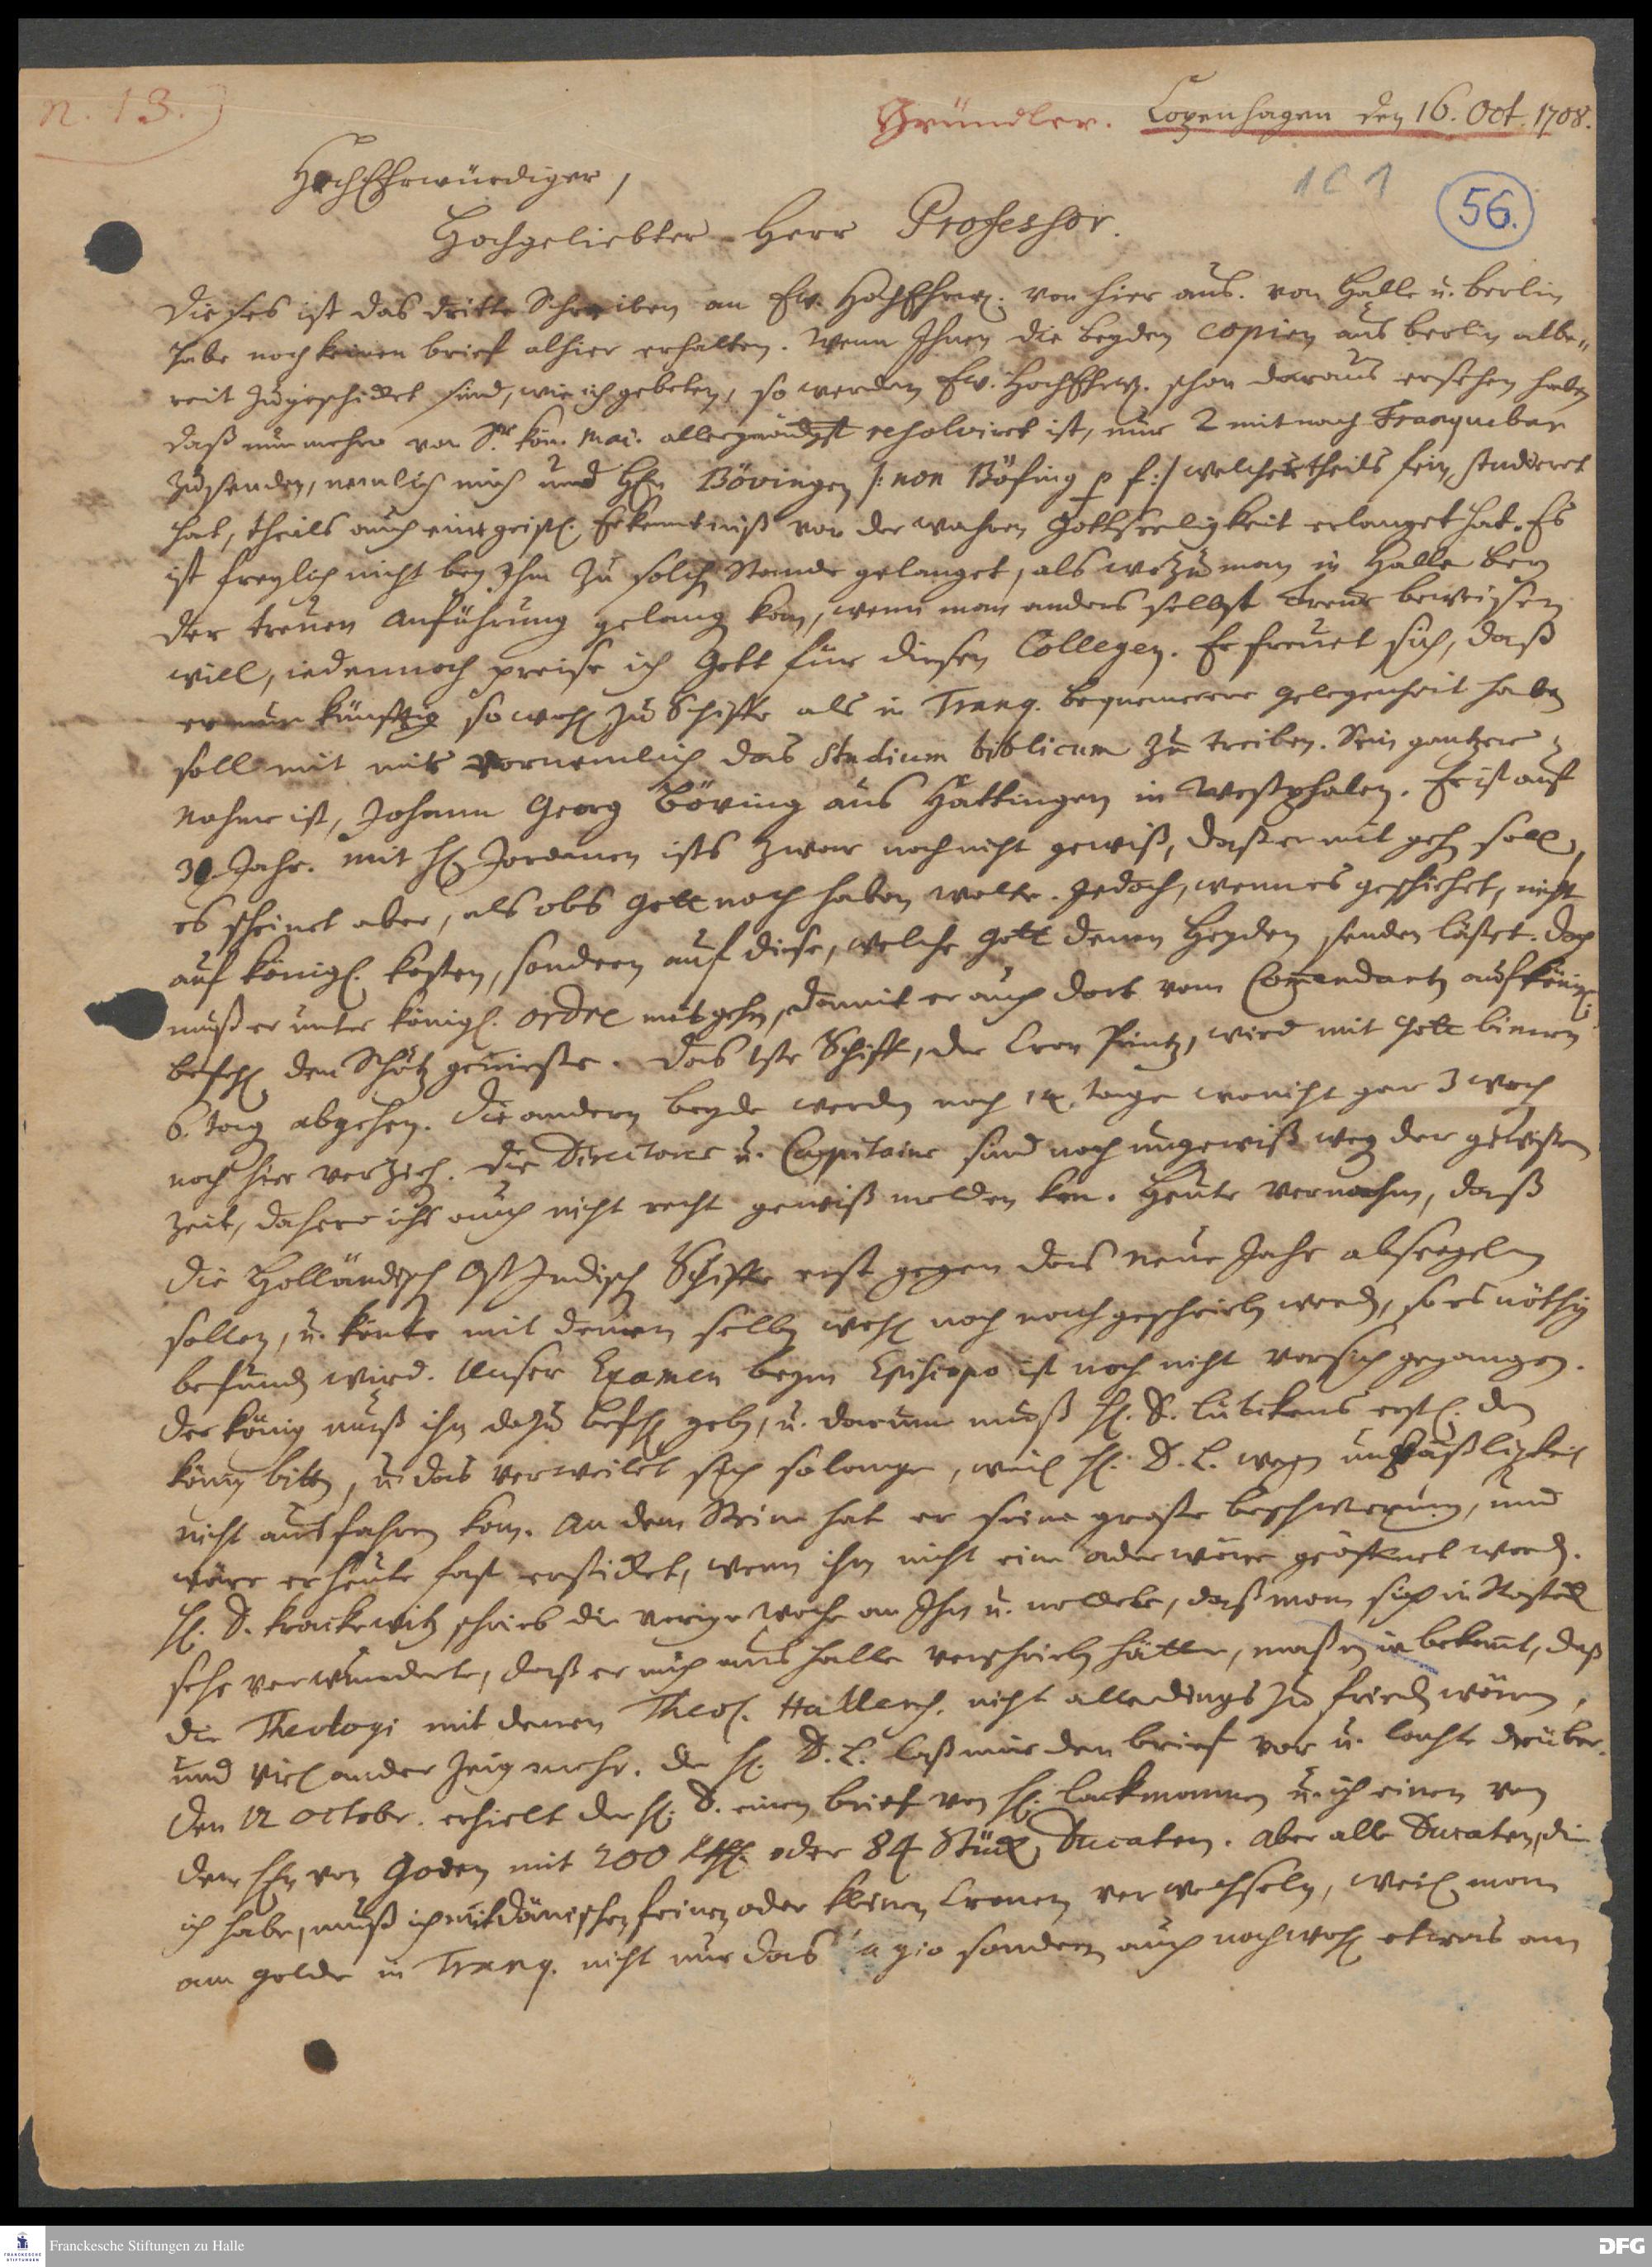 n. 13.)
Gründler. Copenhagen den 16. Oct. 1708.
1 C 1
56.
HochEhrwürdiger,
Hochgeliebter Herr Professor.
Dieses ist das dritte Schreiben an Ew. HochEhrw. von hier aus. von Halle u. Berlin
habe noch keinen brief alhier erhalten. Wenn Ihnen die beyden copien aus Berlin albe„
reit zugeschickt sind, wie ich gebeten, so werden Ew. HochEhrw. schon daraus ersehen haben
daß nunmehro von Sr. kön. Maj. allergnädigst resolviret ist, nur 2 mit nach Tranquebar
zu senden, nemlich mich und HEn Bövingen /: non Böfing p f :/ welcher theils fein studieret
hat, theils auch eine geistl. Erkenntniß von der wahren Gottseeligkeit erlanget hat. Es
ist freylich nicht bey Ihm zu solch Stande gelanget, als wozu man in Halle bey
der treuen Anführung gelang kan, wenn man anders selbst Treue beweisen
will, iedennoch preise ich Gott für diesen Collegen. Er freuet sich, daß
er nun künfftig so wohl zu Schiffe als in Tranq. bequemere gelegenheit haben
soll mit mir vornemlich das Studium biblicum zu treiben. Sein gantzer
Nahme ist, Johann Georg Böving aus Hattingen in Westphalen. Er ist auf
30 Jahr. Mit H. Jordanen ists zwar noch nicht gewiß, daß er mit gehn soll,
es scheinet aber, als obs Gott noch haben wolte. Jedoch, wenn es geschiehet, nicht
auf königl. kosten, sondern auf diese, welche Gott denen Heyden senden läßet. Doch
muß er unter königl. Ordre mit gehn, damit er auch dort vom Commendanten auf königl.
befehl den Schutz geniesse. Das 1ste Schiff, der Cron Printz, wird mit Gott binnen
6. tag abgehen. Die andern beyde werden noch 14. tage wo nicht gar 3 woch
noch hier verzieh. Die Directores u. Capitaine sind noch ungewiß weg der gewissen
Zeit, dahero ichs auch nicht recht gewiß melden kan. Heute vernahm, daß
die Holländisch Ost Indisch Schiffe erst gegen das neue Jahr absegeln
solten, u. könte mit denen selben wohl noch nachgeschrieben werden, so es nöthig
befunden wird. Unser Examen beym Episcopo ist noch nicht vor sich gegangen.
Der König muß ihn dazu befehl geben, u. darum muß H. D. Lütkens erstl. den
König bitten, u. das verweilet sich so lange, weil H. D. L. wegen unpäßligkeit
nicht ausfahren kan. An dem Steine hat er seine groste beschwerung, und
wäre er heute fast ersticket, wenn ihm nicht eine ader wäre geöffnet worden.
H. D. Krackewitz schrieb die vorige Woche an Ihn u. meldete, daß man sich in Rostock
sehr verwunderte, daß er mich aus Halle verschrieben hätte, maßen ja bekannt, daß
die Theologi mit denen Theol. Hallens. nicht allerdings zu frieden wären,
und viel ander Zeug mehr. Der H. D. L. laß mir den brief vor u. lachte drüber.
Den 12 October. erhielt der H. D. einen brief von H. Lackmannen u. ich einen von
dem HEn von Goden mit 200 Rthl. oder 84 Stück Ducaten. Aber alle Ducaten, die
ich habe, muß ich mit Dänischen feinen oder kleinen Cronen verwechseln, weil man
am golde in Tranq. nicht nur das agio sondern auch noch wohl etwas am
Franckesche Stiftungen zu Halle
DFG